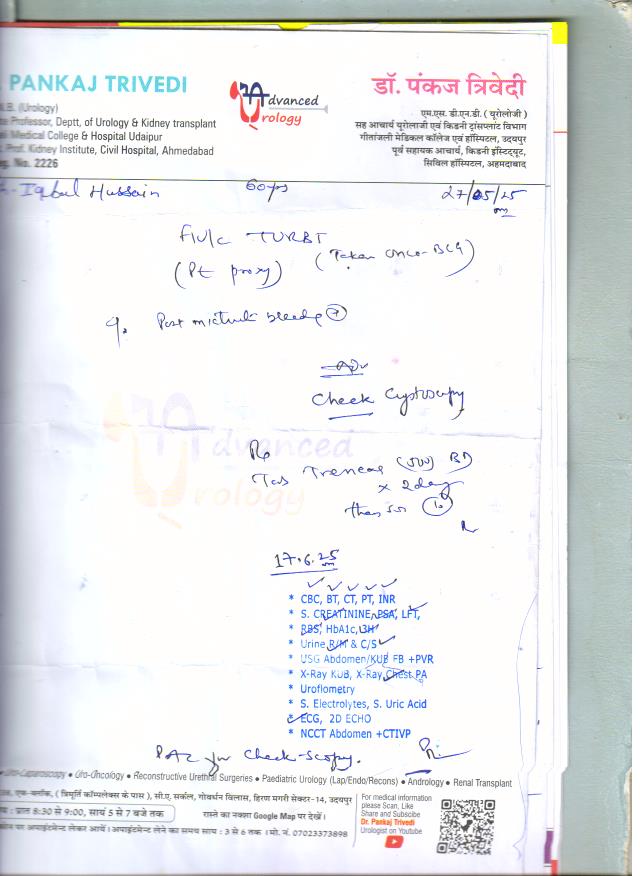 . PANKAJ TRIVEDI
N.B. (Urology)
Professor, Deptt. of Urology & Kidney transplant
Medical College & Hospital Udaipur
Prof. Kidney Institute, Civil Hospital, Ahmedabad
g. No. 2226
Advanced
Urology
डॉ. पंकज त्रिवेदी
एम.एस. डी.एन.बी. (यूरोलोजी)
सह आचार्य यूरोलोजी एवं किडनी ट्रांसप्लांट विभाग
गीतांजली मेडिकल कॉलेज एवं हॉस्पिटल, उदयपुर
पूर्व सहायक आचार्य, किडनी इंस्टिट्यूट,
सिविल हॉस्पिटल, अहमदाबाद
Iqbal Hussain 60 yrs 27/05/25
F/U/c TURBT
(Pt proxy) (Taken onco-BCG)
Post mictu bleeding +
Adv
Check Cystoscopy
Advanced
Urology
Rx
Tab (500) BD
x 2 day
than SOS (10)
17.6.25
* CBC, BT, CT, PT, INR
* S. CREATININE, PSA, LFT,
* RBS, HbA1c, 3H
* Urine R/M & C/S
* USG Abdomen/KUB FB +PVR
* X-Ray KUB, X-Ray Chest PA
* Uroflometry
* S. Electrolytes, S. Uric Acid
* ECG, 2D ECHO
* NCCT Abdomen +CTIVP
PAC for Check-scopy.
Uro-Laparoscopy • Uro-Oncology • Reconstructive Urethral Surgeries • Paediatric Urology (Lap/Endo/Recons) • Andrology • Renal Transplant
, एक-ब्लॉक, ( त्रिमूर्ति कॉम्पलेक्स के पास ), सी.ए. सर्कल, गोवर्धन विलास, हिरण मगरी सेक्टर-14, उदयपुर
: प्रात 8:30 से 9:00, सायं 5 से 7 बजे तक
रास्ते का नक्शा Google Map पर देखें।
फोन पर अपाइंटमेन्ट लेकर आयें। अपाइंटमेन्ट लेने का समय सायं : 3 से 6 तक । मो. नं. 07023373898
For medical information
please Scan, Like
Share and Subscibe
Dr. Pankaj Trivedi
Urologist on Youtube